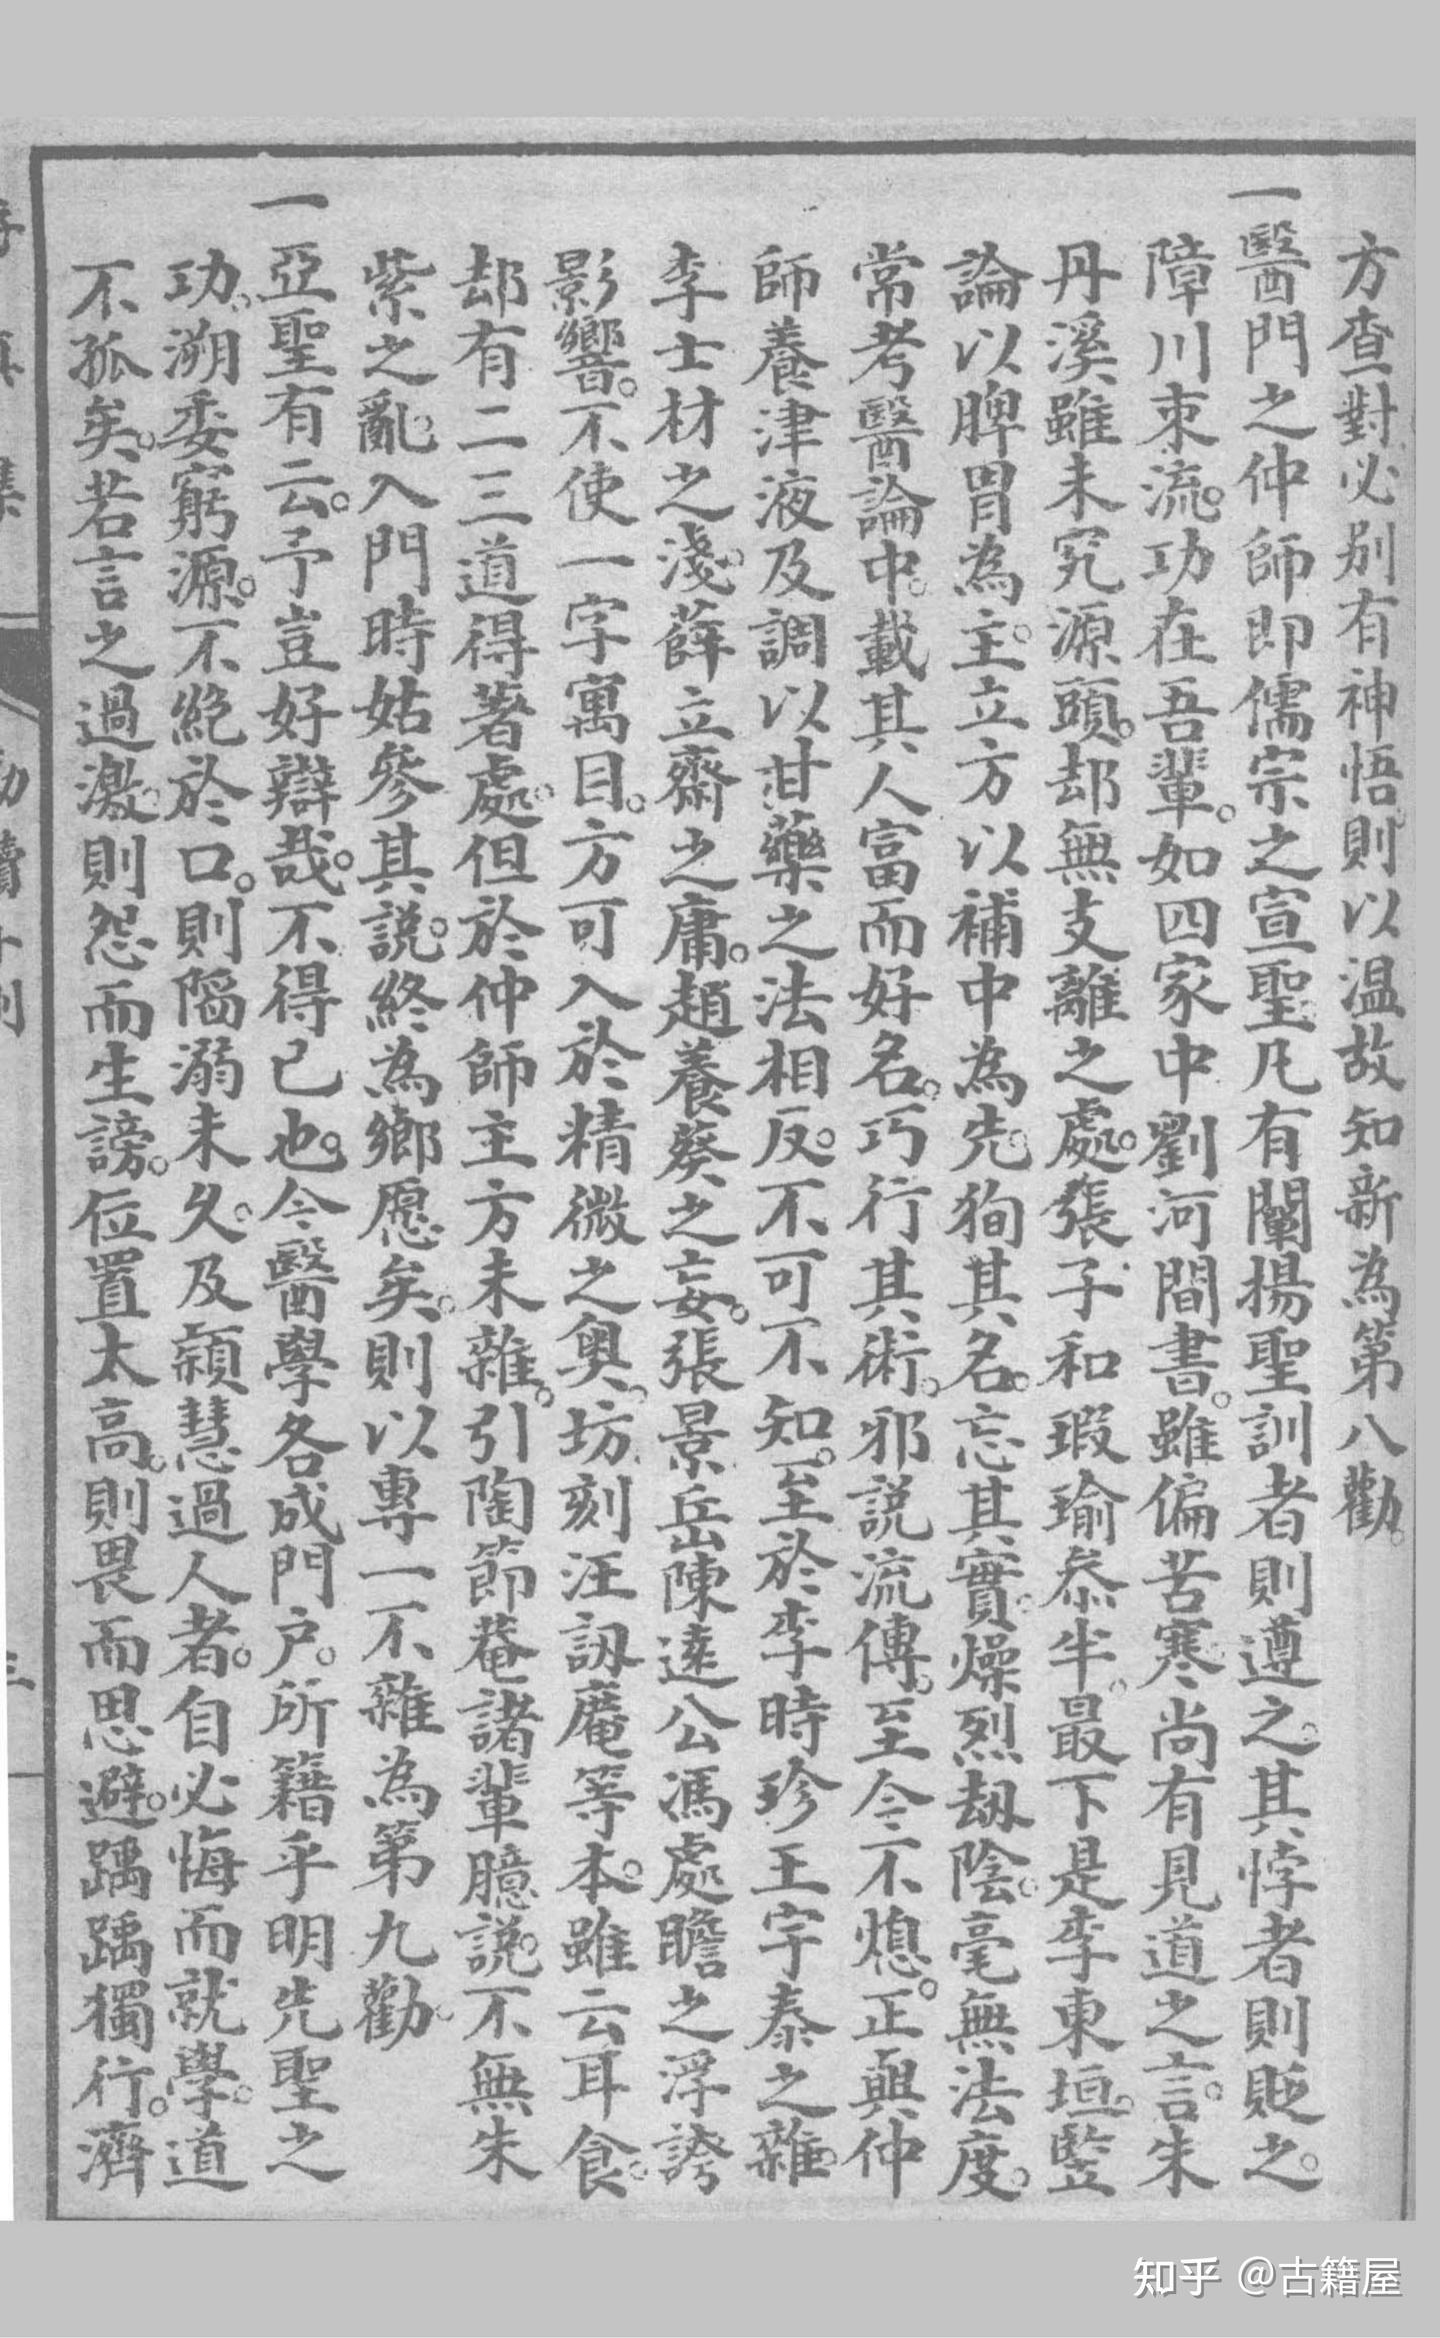 方查對必別有神悟則以温故知新為第八勸。
一醫門之仲師即儒宗之宣聖凡有闡揚聖訓者則遵之。其悖者則貶之。
障川東流。功在吾輩。如四家中劉河間書。雖偏苦寒尚有見道之言。朱
丹溪雖未究源頭。却無支離之處。張子和瑕瑜叅半。最下是李東垣。豎
論以脾胃為主。立方以補中為先。狥其名。忘其實。燥烈劫陰。毫無法度。
常考醫論中。載其人富而好名。巧行其術。邪説流傳。至今不熄。正與仲
師養津液及調以甘藥之法相反。不可不知。至於李時珍王宇泰之雜。
李士材之淺。薛立齋之庸。趙養葵之妄。張景岳陳遠公馮處瞻之浮誇
影響。不使一字寓目。方可入於精微之奧。坊刻汪訒庵等本。雖云耳食。
却有二三道得著處。但於仲師主方未雜。引陶節菴諸輩臆説。不無朱
紫之亂。入門時姑參其説。終為鄉愿矣。則以專一不雜為第九勸。
一亞聖有云。予豈好辯哉。不得已也。今醫學各成門户。所籍乎明先聖之
功。溯委窮源。不絕於口。則陷溺未久。及穎慧過人者。自必悔而就學。道
不孤矣。若言之過激。則怨而生謗。位置太高。則畏而思避。踽踽獨行。濟
勸讀十則
三
知乎 @古籍屋